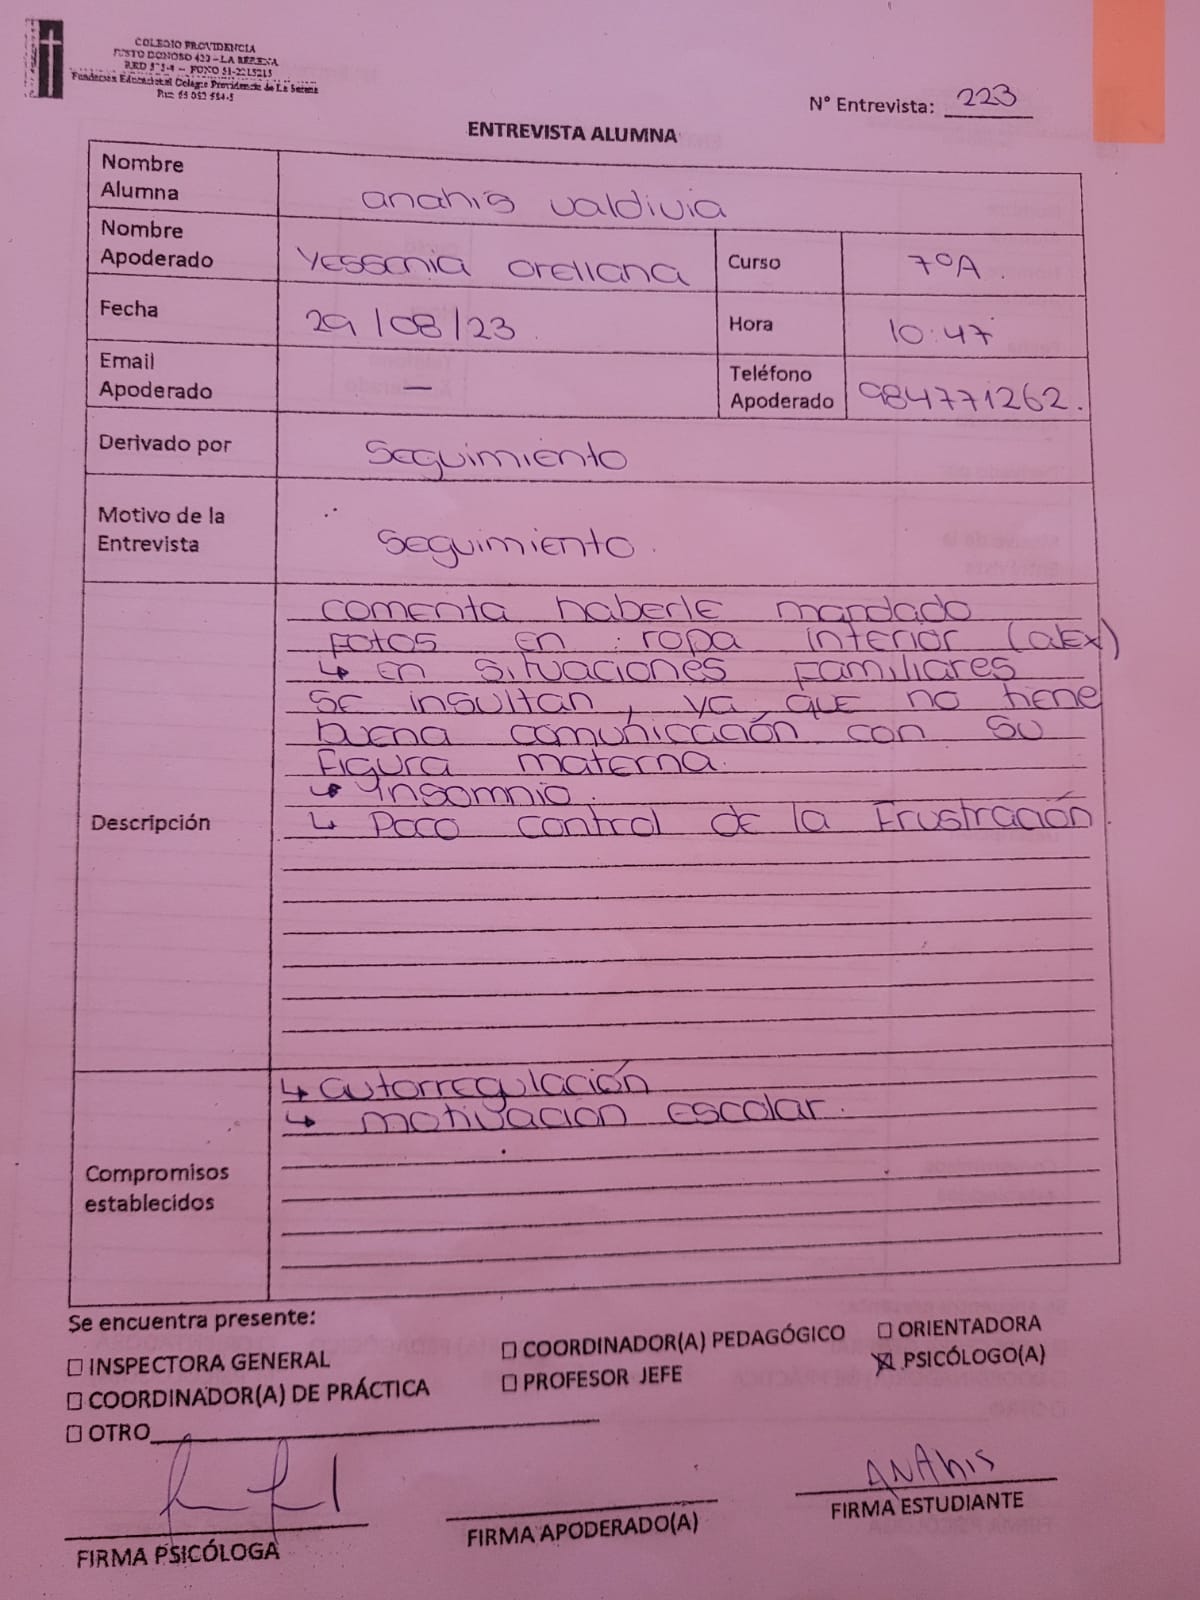 COLEGIO PROVIDENCIA
JUSTO DONOSO 420 – LA SERENA
Fundación Educacional Colegio Providencia de La Serena
N° Entrevista: 223
ENTREVISTA ALUMNA
Nombre Alumna anahis valdivia
Nombre Apoderado Yessenia Orellana Curso 7°A.
Fecha 29/08/23. Hora 10:47
Email Apoderado — Teléfono Apoderado 984771262.
Derivado por Seguimiento
Motivo de la Entrevista Seguimiento.
Descripción
comenta haberle mandado
fotos en ropa interior (alex)
↳ en situaciones familiares
se insultan, ya que no tiene
buena comunicación con su
figura materna.
↳ Ynsomnio.
↳ Poco control de la Frustración
Compromisos establecidos
↳ autorregulación
↳ motivacion escolar.
Se encuentra presente:
☐ INSPECTORA GENERAL ☐ COORDINADOR(A) PEDAGÓGICO ☐ ORIENTADORA
☐ COORDINADOR(A) DE PRÁCTICA ☐ PROFESOR JEFE ☒ PSICÓLOGO(A)
☐ OTRO
ANAhis
FIRMA PSICÓLOGA FIRMA APODERADO(A) FIRMA ESTUDIANTE